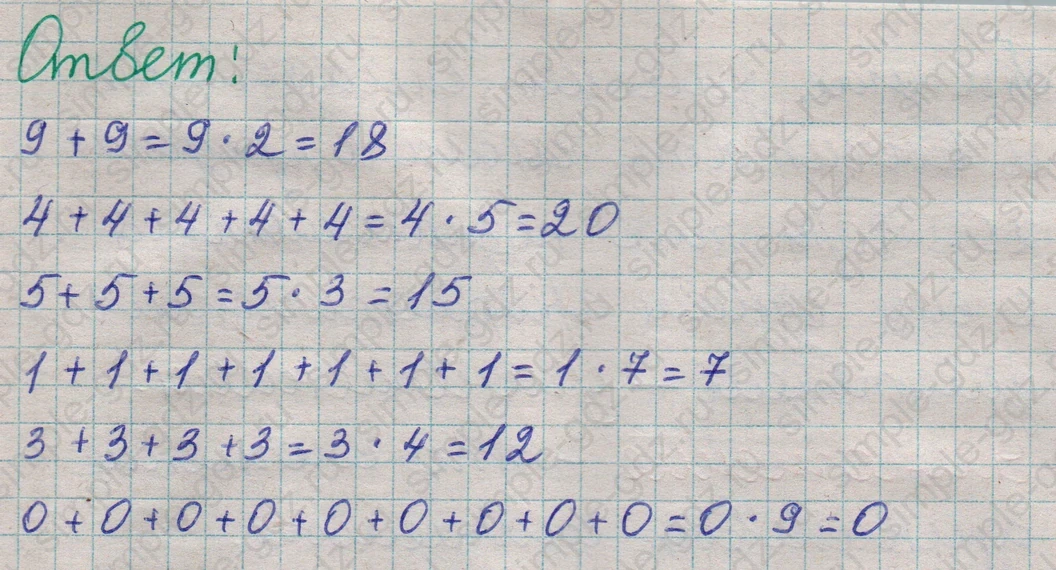 Ответ:
9 + 9 = 9 · 2 = 18
4 + 4 + 4 + 4 + 4 = 4 · 5 = 20
5 + 5 + 5 = 5 · 3 = 15
1 + 1 + 1 + 1 + 1 + 1 + 1 = 1 · 7 = 7
3 + 3 + 3 + 3 = 3 · 4 = 12
0 + 0 + 0 + 0 + 0 + 0 + 0 + 0 + 0 = 0 · 9 = 0
simple-gdz.ru